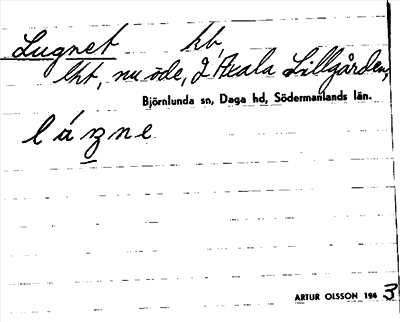 Lugnet hb,
lht, nu öde, J Axala Lillgården,
Björnlunda sn, Daga hd, Södermanlands län.
lázne
ARTUR OLSSON 1943